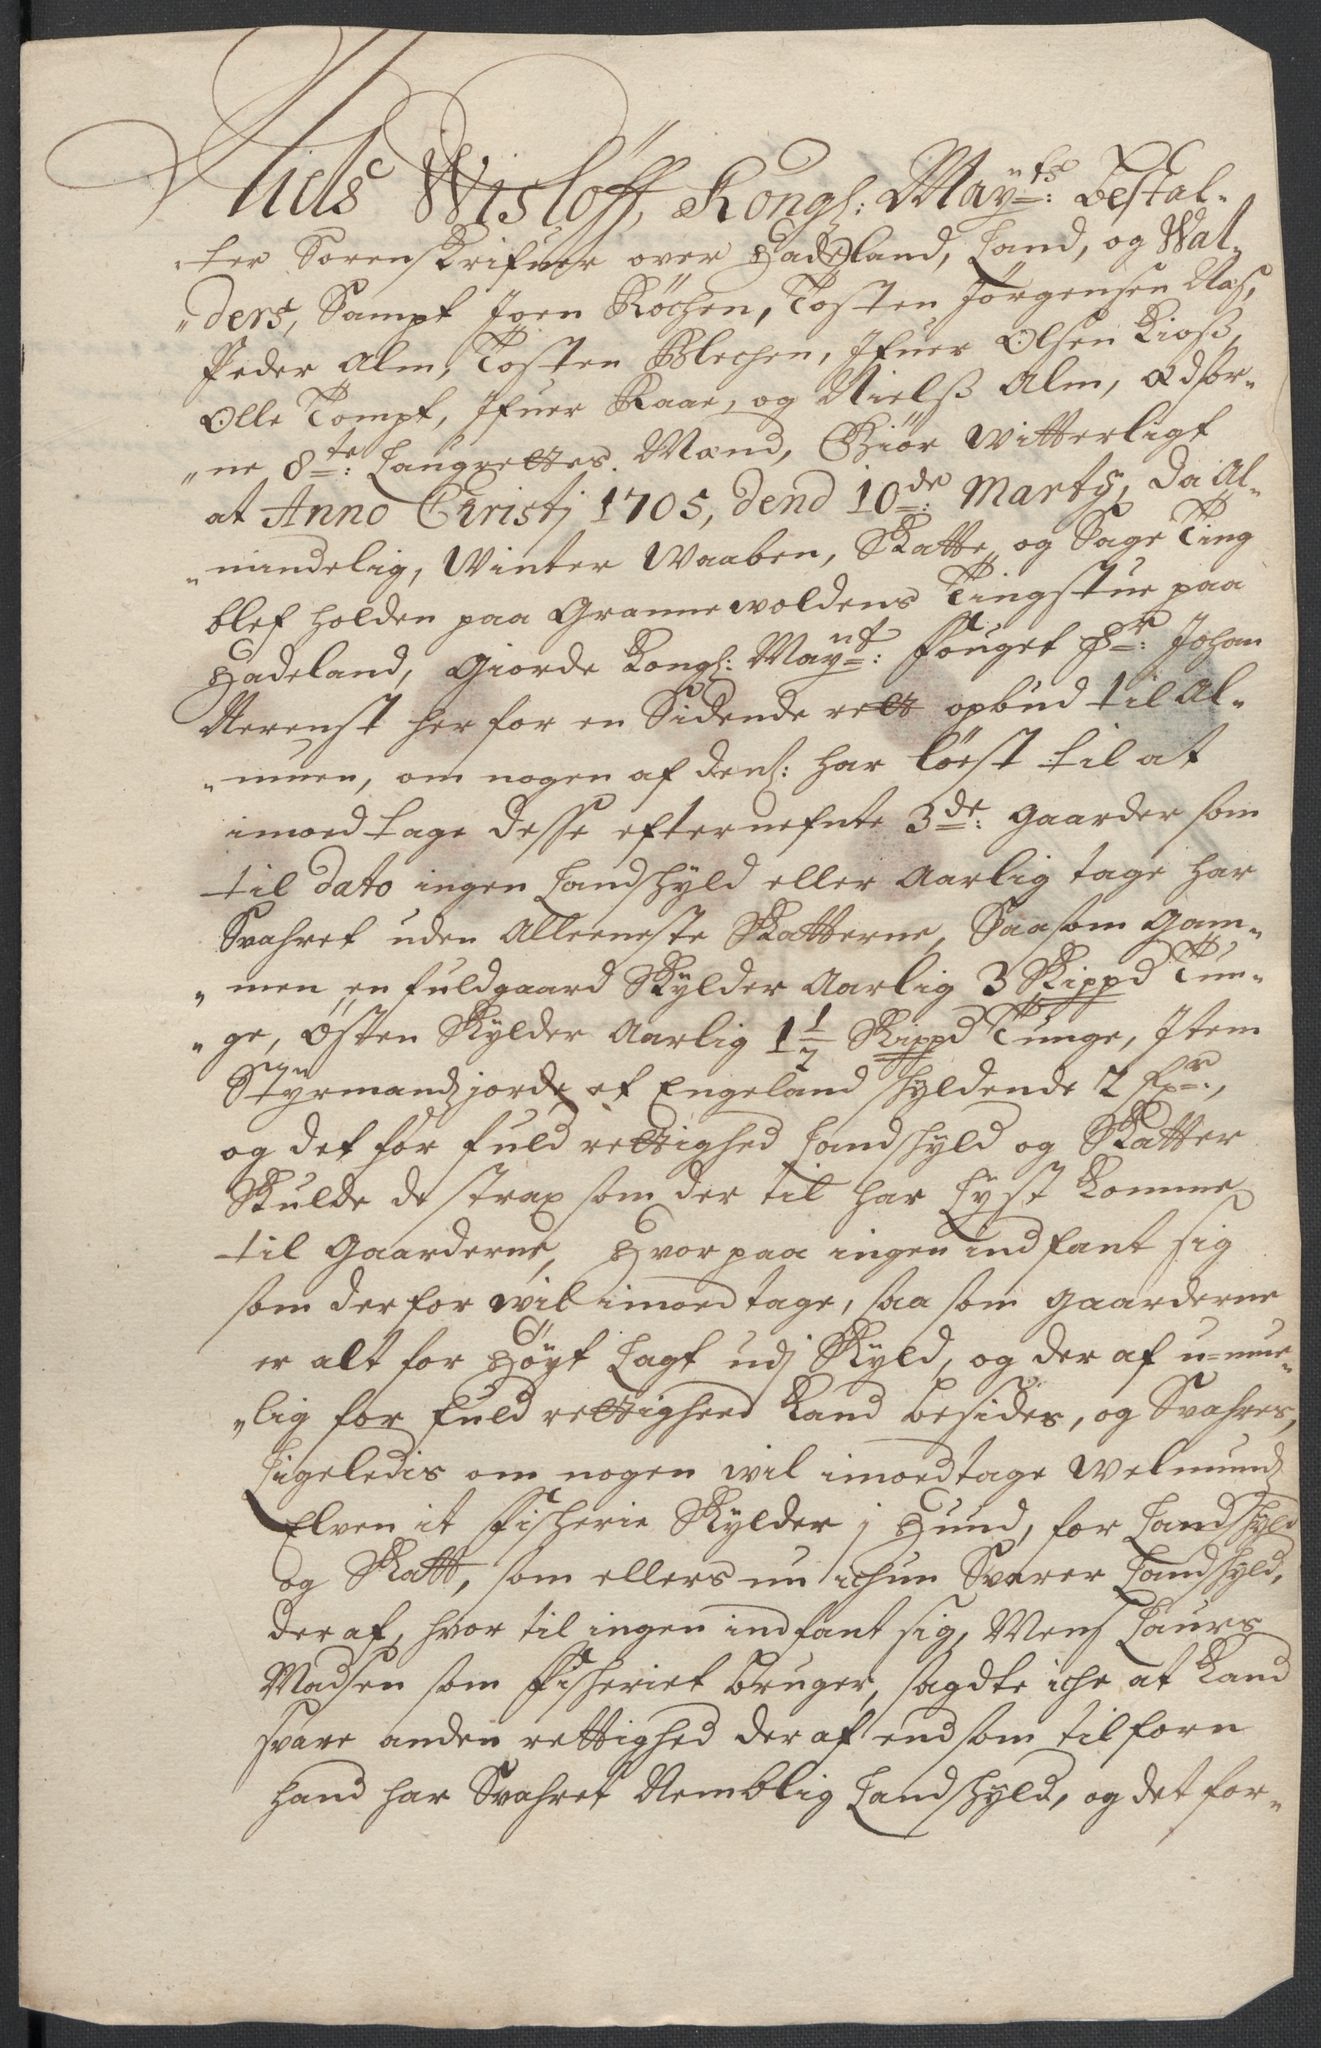 Niels Wisløff, Kongl: May:ts bestal-
ter Sorenskrifuer over Hadeland, Land, og Wal-
ders, Sampt Joen Røchen, Tosten Jørgensen Næs,
Peder Alm, Tosten Blechen, Ifuer Olsen Kioss,
Olle Tompt, Ifuer Raae, og Nielss Alm, Edsor-
ne 8te: Laugrettes Mænd, Giør Witterligt
at Anno Christj 1705, dend 10de: Martÿ, da Al-
mindelig, Winter Waaben, Skatte og Sage Ting
blef holden paa Grannewoldens Tingstue paa
Hadeland, Giorde Kongl: Mayt: Fouget Hr: Johan
Nerenst her for en Sidende rett opbud til Al-
muen, om nogen af denl: har løest til at
imoed tage desse efternefnte 3de: Gaarder som
til dato ingen Landshÿld eller Aarlig tage har
Svahret uden Alleeneste Skatterne, Saasom Gam-
men en fuldgaard Skylder Aarlig 3 Skippd Tun-
ge, Østen Skylder Aarlig 1 1/2 Skippd Tunge, Item
Styrmandsjorde af Engeland shyldende 2 Fr:,
og det for fuld rettighed Landshyld og Skatter
Skulde de strax som der til har Lyst komme
til Gaarderne, Hvorpaa ingen indfant sig
som derfor wil imoedtage, saa som gaarderne
er alt for Høyt Lagt udj Skyld, og der af u-mue-
lig for fuld rettigheed kand besides, og Svahres,
Ligeledis om nogen wil imoedtage Welmunds
Elven it Fisherie Skylder j Hund, for Landshyld
og Skatt, som ellers nu ichun Svarer Landshyld,
der af, hvor til ingen indfant sig, Mens Laurs
Madsen som Fisheriet bruger, sagdte iche at kand
svare anden rettighed der af end som tilforn
hand har Svahret Nemblig Landshyld, og det for-